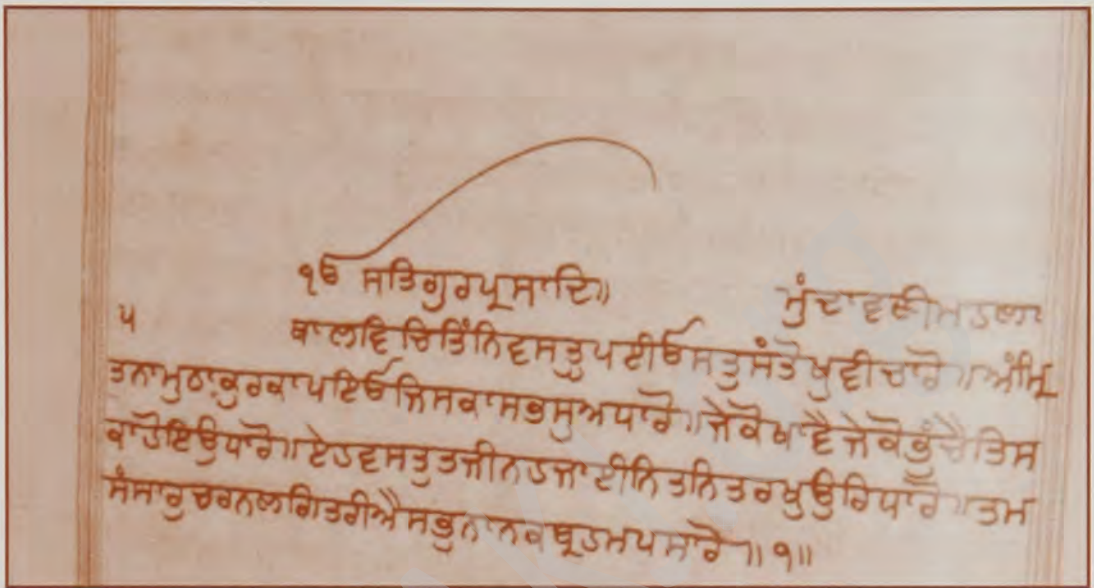 ੧ੳ ਸਤਿਗੁਰਪ੍ਰਸਾਦਿ॥ ਮੁੰਦਾਵਣੀਮਹਲਾ
੫ ਥਾਲਵਿਚਿਤਿੰਨਿਵਸਤੁਪਈਓਸਤੁਸੰਤੋਖੁਵੀਚਾਰੋ॥ਅੰਮ੍ਰਿ
ਤਨਾਮੁਠਾਕੁਰਕਾਪਇਓਜਿਸਕਾਸਭਸੁਅਧਾਰੋ॥ਜੇਕੋਖਾਵੈਜੇਕੋਭੁੰਚੈਤਿਸ
ਕਾਹੋਇਉਧਾਰੋ॥ਏਹਵਸਤੁਤਜੀਨਹਜਾਈਨਿਤਨਿਤਰਖੁਉਰਿਧਾਰੋ॥ਤਮ
ਸੰਸਾਰੁਚਰਨਲਗਿਤਰੀਐਸਭੁਨਾਨਕਬ੍ਰਹਮਪਸਾਰੋ॥੧॥